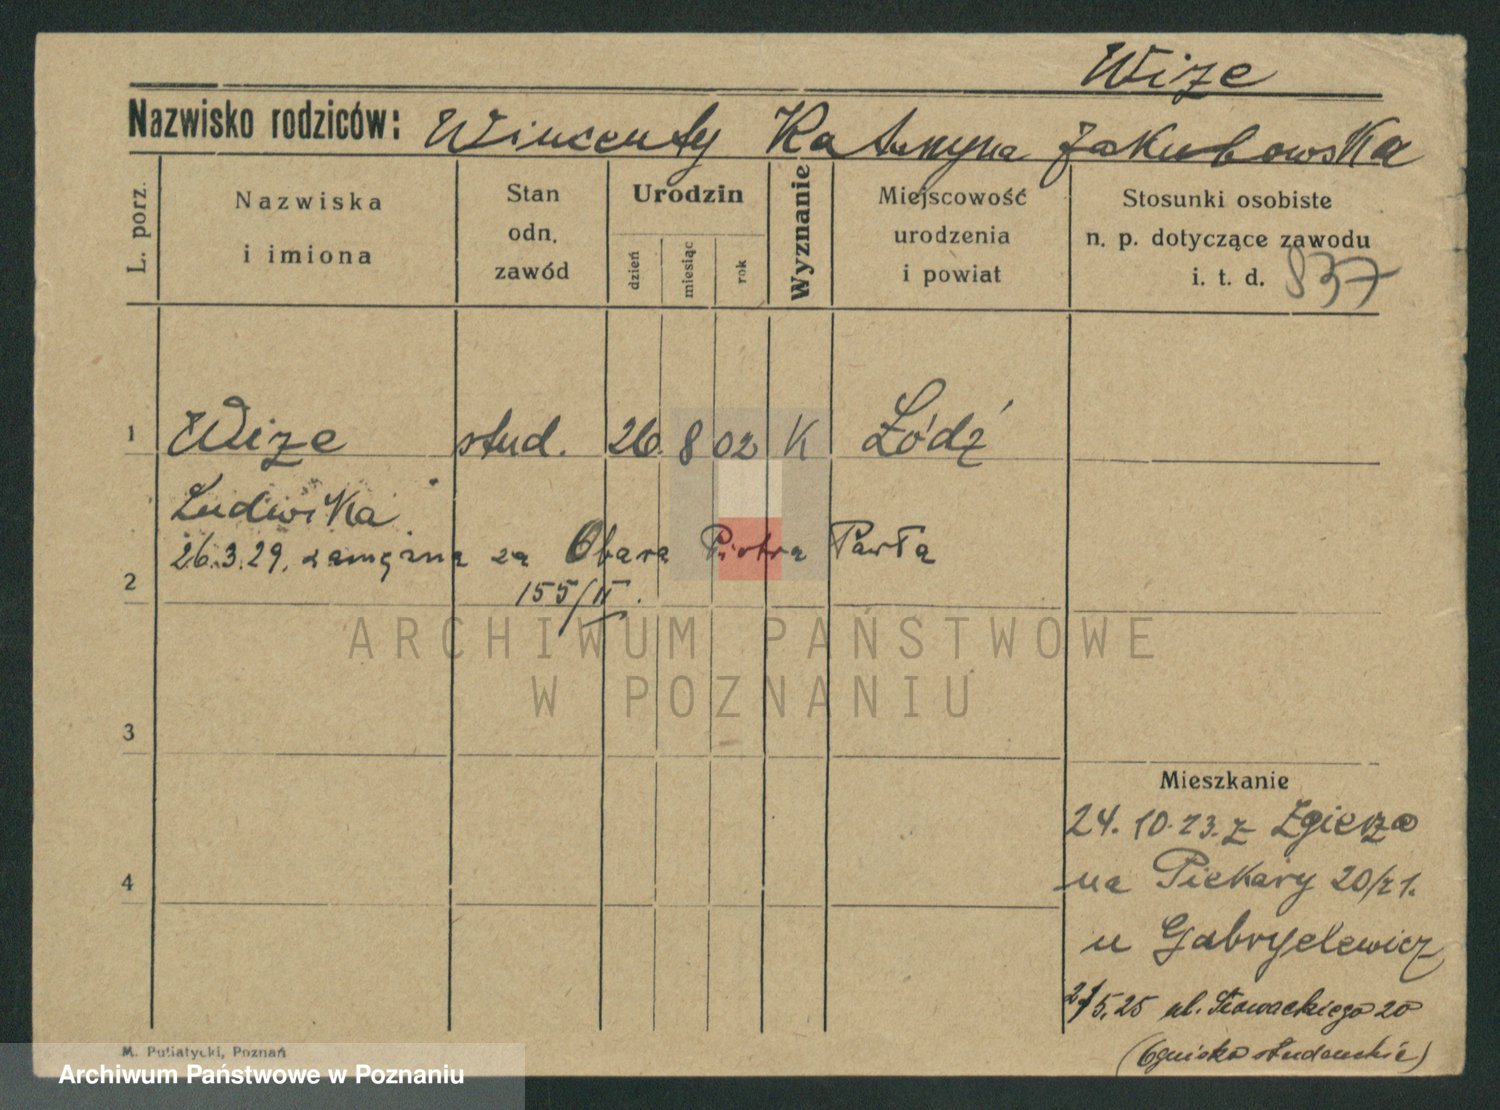 Wize
Nazwisko rodziców: Wincenty Katarzyna Jakubowska
L. porz.
Nazwiska
i imiona
Stan
odn.
zawód
Urodzin
dzień
miesiąc
rok
Wyznanie
Miejscowość
urodzenia
i powiat
Stosunki osobiste
n. p. dotyczące zawodu
i. t. d. 837
1 Wize stud. 26. 8 02 K Łódź
Ludwika
26.3.29. zamężna za Obara Piotra Pawła
2
155/II.
ARCHIWUM PAŃSTWOWE
W POZNANIU
3
Mieszkanie
24. 10. 23. z Zgierza
4
na Piekary 20/21.
u Gabryelewicz
21/5.25 ul. Słowackiego 20
(Ognisko studenckie)
M. Putiatycki, Poznań
Archiwum Państwowe w Poznaniu